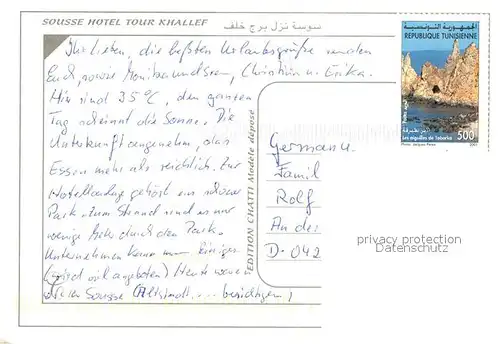 SOUSSE HOTEL TOUR KHALLEF
سوسة نزل برج خلف
Ihr Lieben, die besten Urlaubsgrüße senden
Euch, sowie Monika und Sven, Christian u. Erika.
Hier sind 35°C, den ganzen
Tag scheint die Sonne. Die
Unterkunft angenehm, das
Essen mehr als reichlich. Zur
Hotelanlage gehört ein schöner
Park. Zum Strand sind es nur
wenige durch den Park.
Unternehmen kann man einiges
(wird viel angeboten) Heute waren
wir in Sousse (Altstadt ... besichtigen)
EDITION CHATTI Modèle déposé
الجمهورية التونسية
REPUBLIQUE TUNISIENNE
500
Les aiguilles de Tabarka
2001
Germany.
Famil
Rolf
An der
D-042
privacy protection
Datenschutz